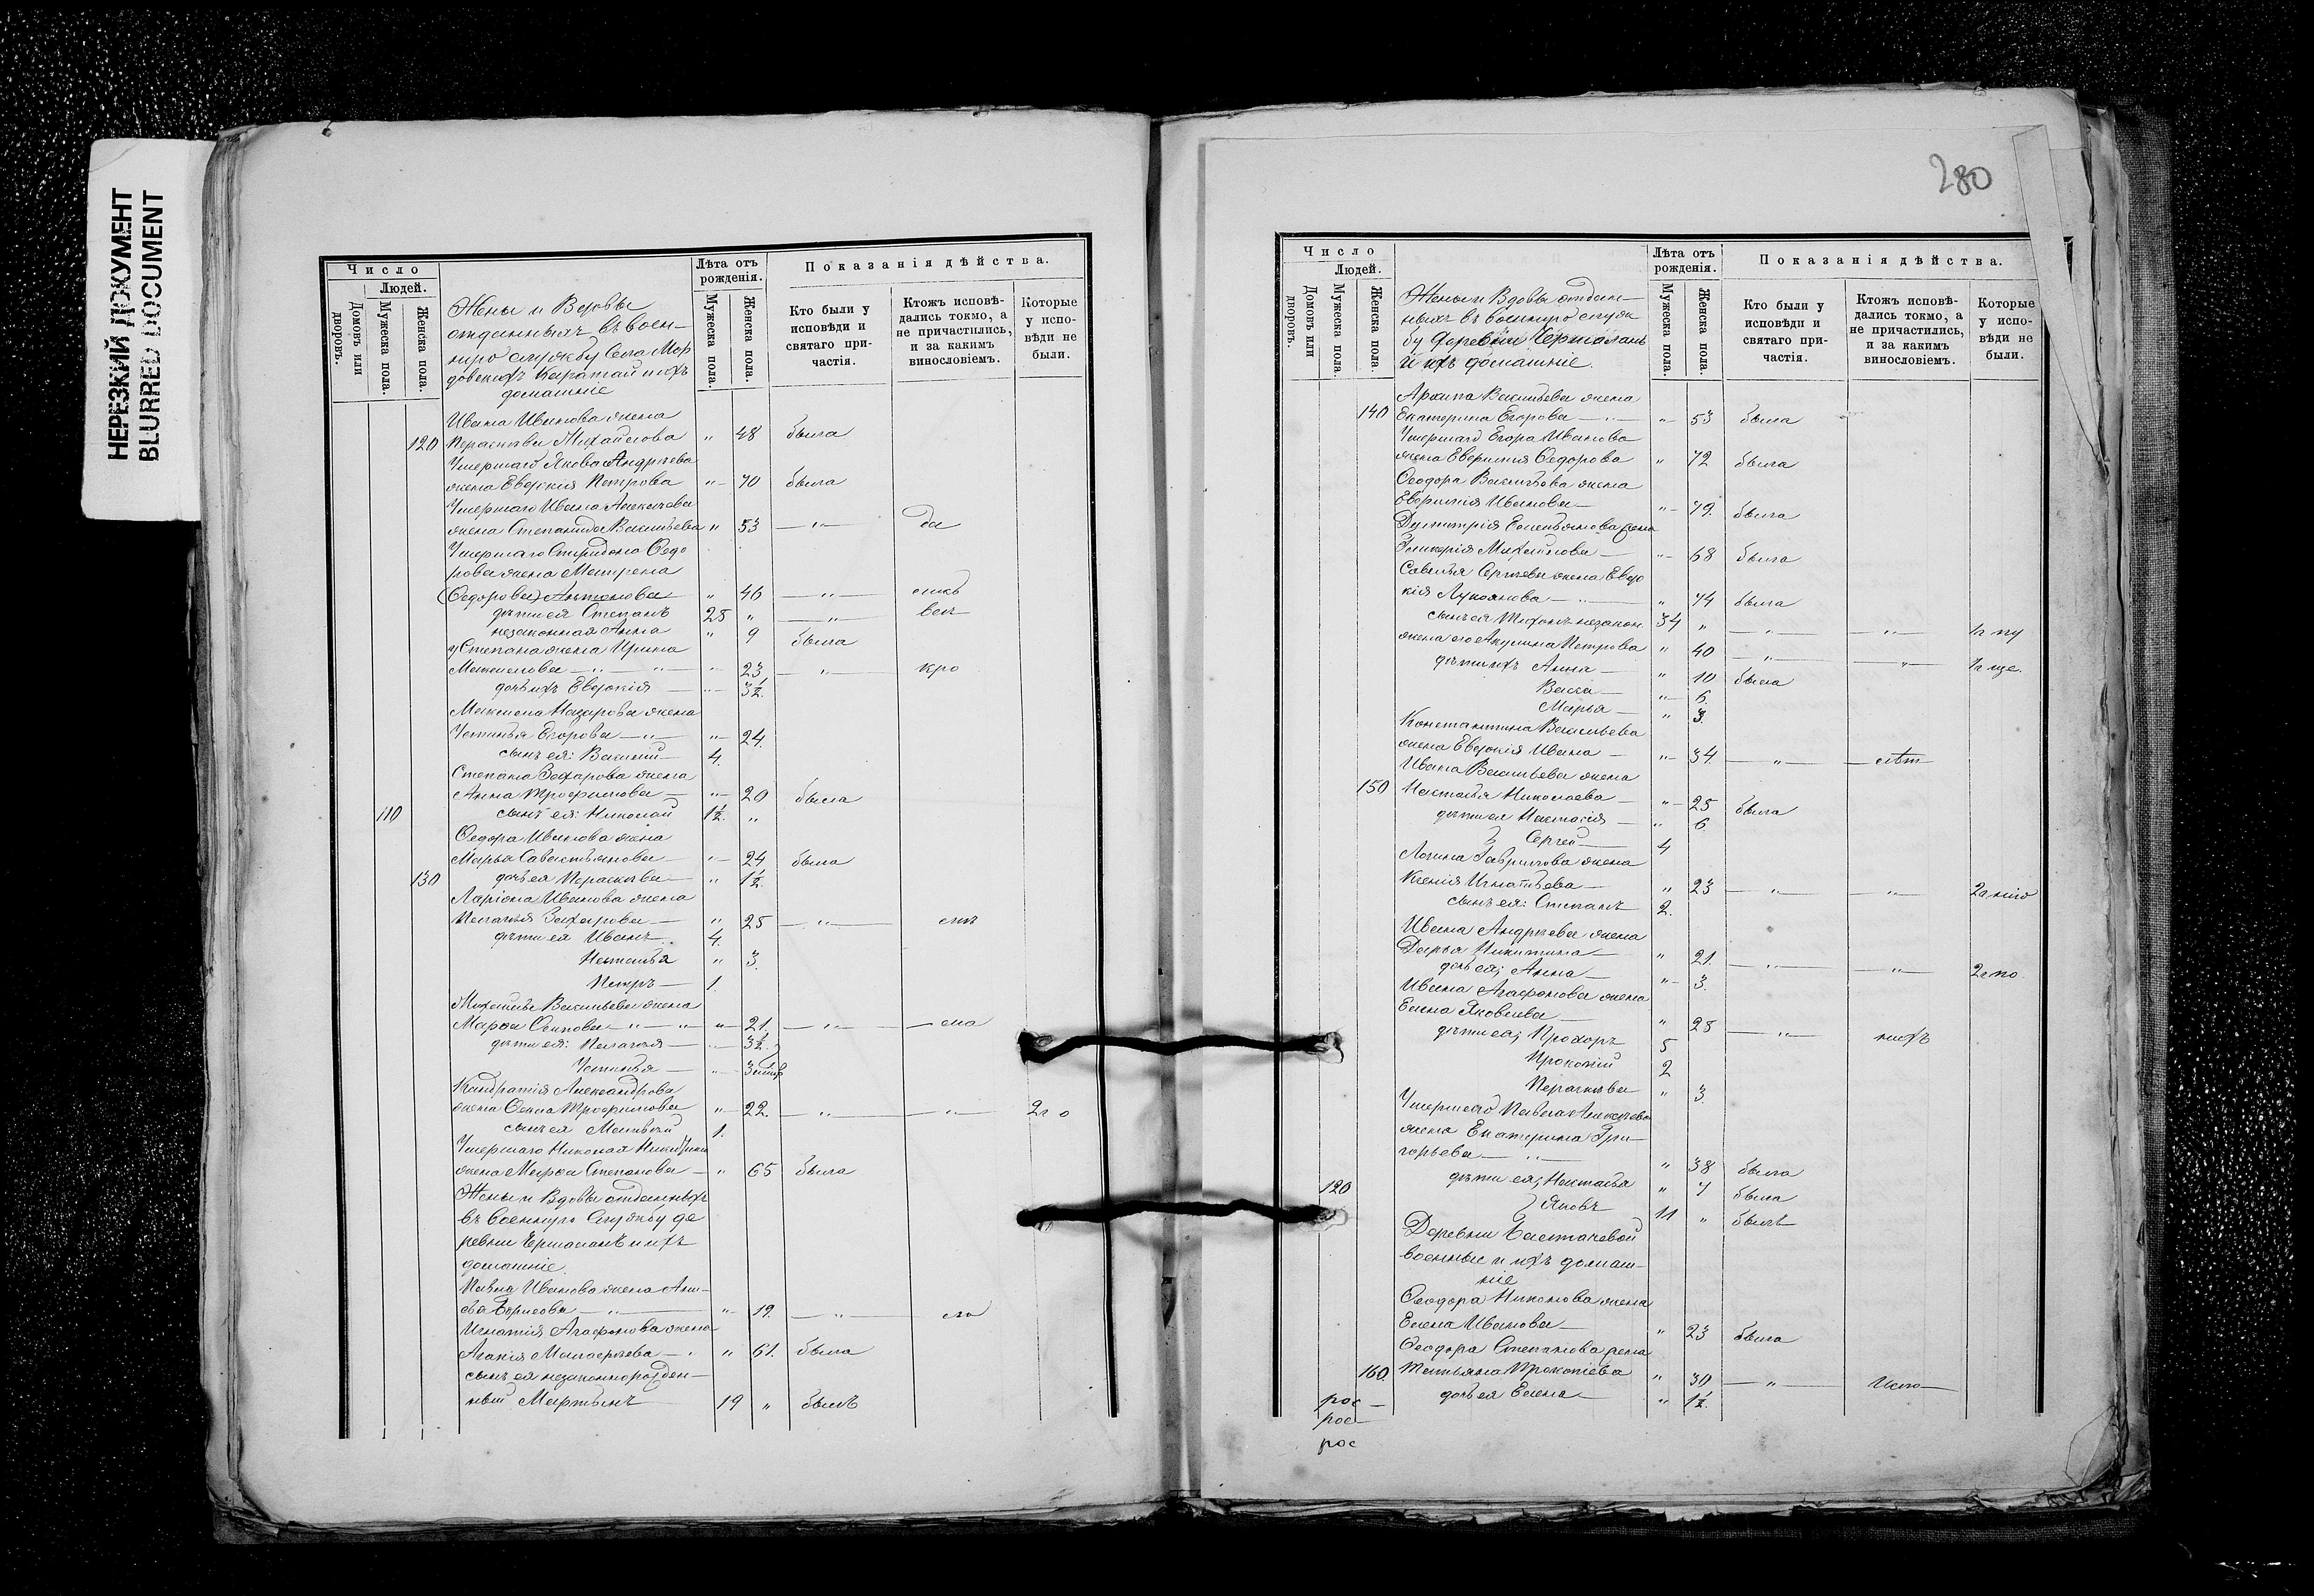 НЕРЕЗКИЙ ДОКУМЕНТ
BLURRED DOCUMENT
Число
Людей.
Домовъ или дворовъ.
Мужеска пола.
Женска пола.
Лѣта отъ рожденія.
Мужеска пола.
Женска пола.
Показанія дѣйства.
Кто были у исповѣди и святаго причастія.
Ктожъ исповѣдались токмо, а не причастились, и за какимъ винословіемъ.
Которые у исповѣди не были.
Жены и Вдовы
отданныхъ въ воен-
ную службу Села Мор
довскихъ Каратай и ихъ
домашніе
Ивана Иванова жена
120 Параскева Михайлова " 48 была
Умершаго Якова Андреева
жена Евдокия Петрова " 70 была
Умершаго Ивана Алексѣева
жена Степанида Васильева " 53 — " — да
Умершаго Спиридона Ѳедо
рова жена Матрена
(Ѳедорова) Антонова " 46 — " —
дѣти ея Степанъ 25 " — " —
незаконная Анна " 9 была
у Степана жена Ирина
Максимова — " — " 23 — " — кро
дочь ихъ Евдокія — " 3½.
Максима Назарова жена
Устинья Егорова — " — " 24.
сынъ ея: Василий 4.
Степана Захарова жена
Анна Трофимова — " 20 была
110 сынъ ея: Николай 1½. "
Ѳедора Иванова жена
Марья Савастьянова — " 24 была
130 дочь ея Параскева — " 1½.
Ларіона Иванова жена
Пелагья Захарова — " 25 — " —
дѣти ея Иванъ 4.
Настасья " 3.
Петръ — 1.
Михаила Васильева жена
Марѳа Осипова — " — " — " 21. — " —
дѣти ея: Пелагея — " 3½.
Устинья — "
Кандратія Александрова
жена Ѳекла Трофимова " 22. — " — — " —
сынъ ея Матвѣй 1.
Умершаго Николая Никитина
жена Марѳа Степанова — " 65 была
Жены и Вдовы отданныхъ
въ военную Службу де
ревни Ермаланъ и ихъ
домашніе.
Павла Иванова жена
Борисова — " — " 19. — " —
Игнатія Агафонова жена
Агапія Малафѣева — " " 61. была
сынъ ея незаконнорожден-
ный Мартынъ 19 " былъ
280
Число
Людей.
Домовъ или дворовъ.
Мужеска пола.
Женска пола.
Лѣта отъ рожденія.
Мужеска пола.
Женска пола.
Показанія дѣйства.
Кто были у исповѣди и святаго причастія.
Ктожъ исповѣдались токмо, а не причастились, и за какимъ винословіемъ.
Которые у исповѣди не были.
Жены и Вдовы отдан-
ныхъ въ военную служ
бу деревни
и ихъ домашніе.
Архипа Васильева жена
140 Екатерина Егорова — " — " 53 была
Умершаго Егора Иванова
жена Евфимия Ѳедорова " 72 была
Ѳеодора Васильева жена
Евфимія Иванова — " 79. была
Думитрія Емельянова жена
Гликерія Михайлова — " 68 была
Савелья Сергѣева жена Евдо
кія Лукоянова — " — " 74 была
сынъ ея Тихонъ незакон. 34 " — " — "
жена его Акулина Петрова " 40 — " — "
дѣти ихъ Анна — " 10 была
Васса — " 6.
Марья — " 3.
Константина Васильева
жена Евдокія Ивана — " 34. — " —
Ивана Васильева жена
150 Настасья Николаева — " 25 была
дѣти ея Настасія — " 6
Сергей — 4
Логина Гаврилова жена
Ксенія Игнатьева — " 23 — " — "
сынъ ея: Степанъ 2.
Ивана Андреева жена
Дарья Никитина — " 21. — " — " 2г по
дочь ея; Анна — " 3.
Ивана Агафонова жена
Елена Яковлева — " 25 — " — нихъ
дѣти ея; Прохоръ 5
Прокопій 2
Параскева " 3.
Умершаго Павла Алексѣева
жена Екатерина Гри-
горьева — " — " 38 была
120 дѣти ея; Настасья " 7 была
Яковъ 11 " былъ
Деревни Бастаневой
военные и ихъ домаш-
ніе
Ѳеодора Никонова жена
Елена Иванова — " 23 была
Ѳеодора Степанова жена
160. Татьяна Прокопіева " 30 — " —
дочь ея Елена — " 1½.
рос —
рос —
рос